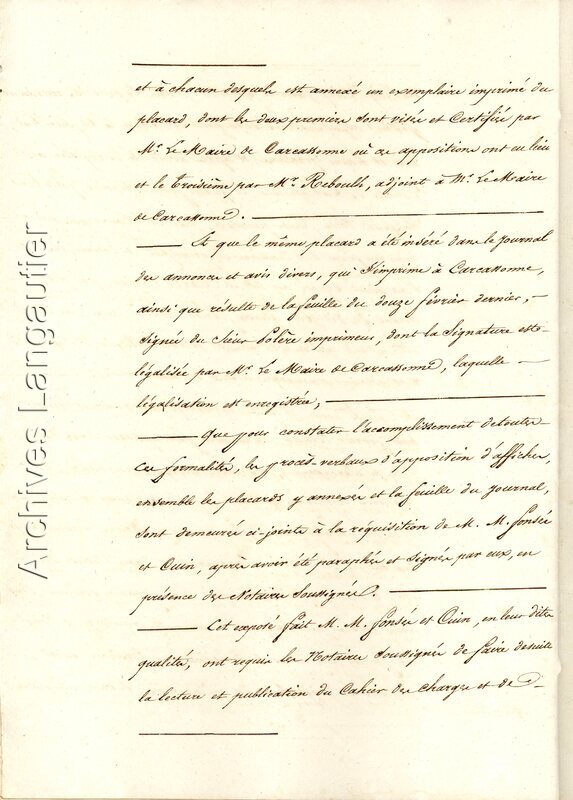 et à chacun desquels est annexé un exemplaire imprimé du
placard, dont les deux premiers sont visés et certifiés par
Mr. Le Maire de Carcassonne où ces appositions ont eu lieu
et le troisième par Mr. Reboulh, adjoint à Mr. Le Maire
de Carcassonne.
Et que le même placard a été inséré dans le journal
des annonces et avis divers, qui s'imprime à Carcassonne,
ainsi que résulte de la feuille du douze février dernier,
signée du sieur Polère imprimeur, dont la signature est
légalisée par Mr. Le Maire de Carcassonne, laquelle
légalisation est enregistrée,
Que pour constater l'accomplissement de toutes
ces formalités, les procès-verbaux d'apposition d'affiches,
ensemble les placards y annexés et la feuille du journal,
sont demeurés ci-joints à la réquisition de M. M. Fonsés
et Cuin, après avoir été paraphés et signés par eux, en
présence des Notaires soussignés.
Cet exposé fait M. M. Fonsés et Cuin, en leur dite
qualité, ont requis les Notaires soussignés de faire desuite
la lecture et publication du Cahier des charges et de
Archives Langautier